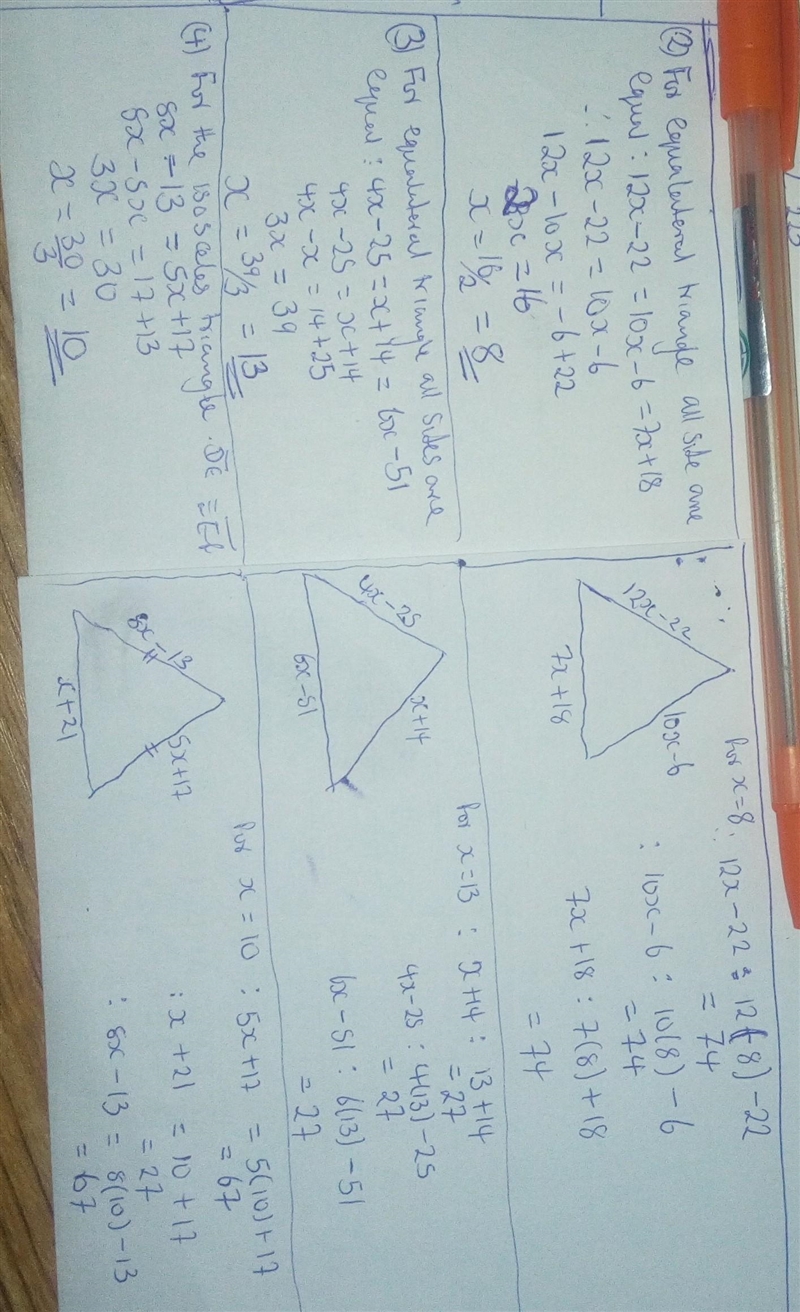 (2) For equalateral triangle all side are
equal : 12x-22 = 10x-6 = 7x+18
∴ 12x-22 = 10x-6
12x-10x = -6+22
2x = 16
x = 16/2 = 8
12x-22
10x-6
7x+18
for x=8 : 12x-22 = 12(8)-22
= 74
: 10x-6 : 10(8)-6
= 74
7x+18 : 7(8)+18
= 74
(3) For equalateral triangle all sides are
equal : 4x-25 = x+14 = 6x-51
4x-25 = x+14
4x-x = 14+25
3x = 39
x = 39/3 = 13
4x-25
x+14
6x-51
for x=13 : x+14 : 13+14
= 27
4x-25 : 4(13)-25
= 27
6x-51 : 6(13)-51
= 27
(4) For the isosceles triangle.
8x-13 = 5x+17
8x-5x = 17+13
3x = 30
x = 30/3 = 10
8x-13
5x+17
x+21
for x=10 : 5x+17 = 5(10)+17
= 67
: x+21 = 10+17
= 27
: 8x-13 = 8(10)-13
= 67